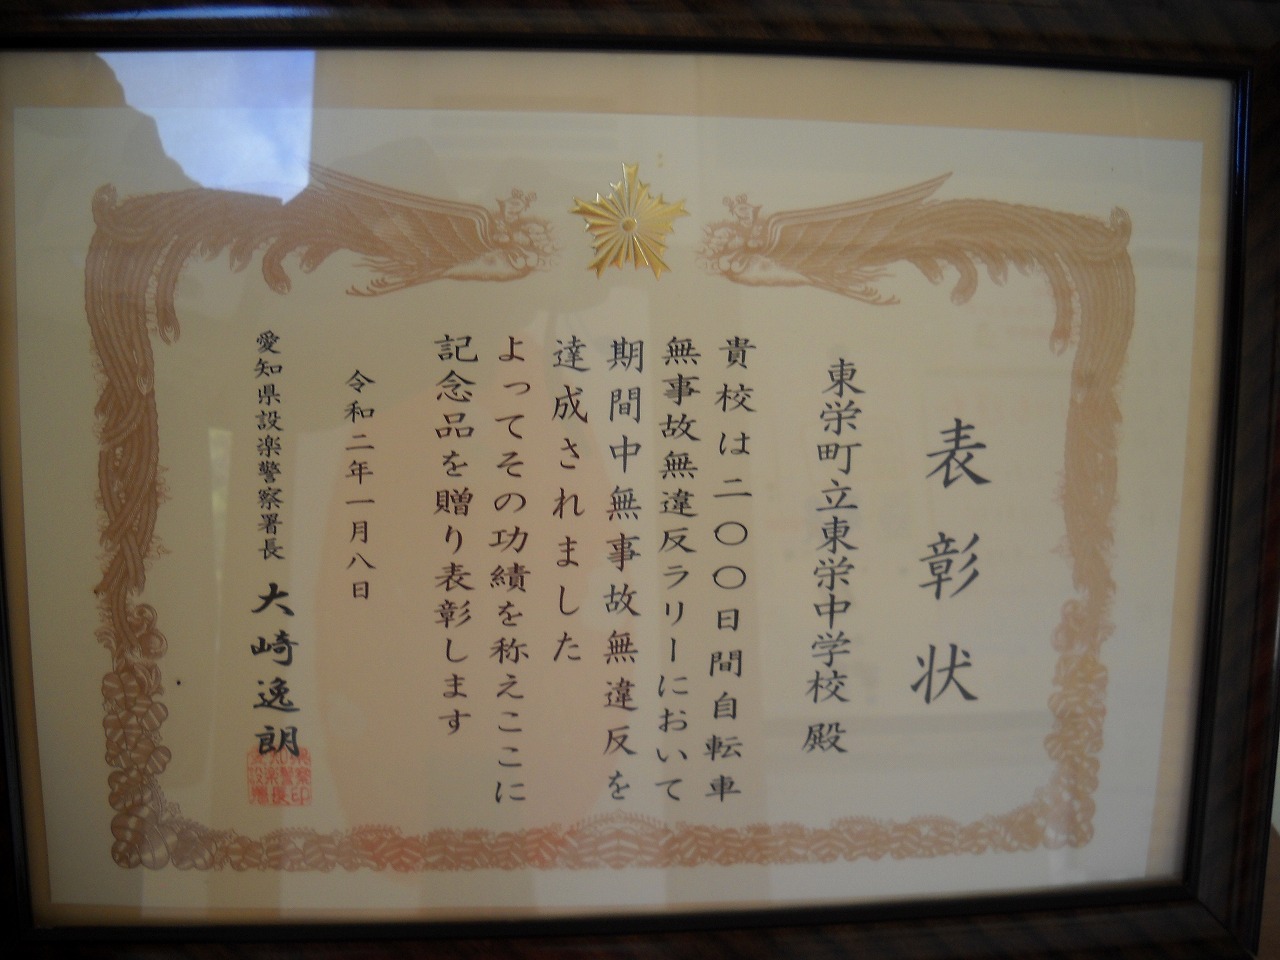 表彰状
東栄町立東栄中学校殿
貴校は二〇〇日間自転車
無事故無違反ラリーにおいて
期間中無事故無違反を
達成されました
よってその功績を称えここに
記念品を贈り表彰します
令和二年一月八日
愛知県設楽警察署長 大崎逸朗